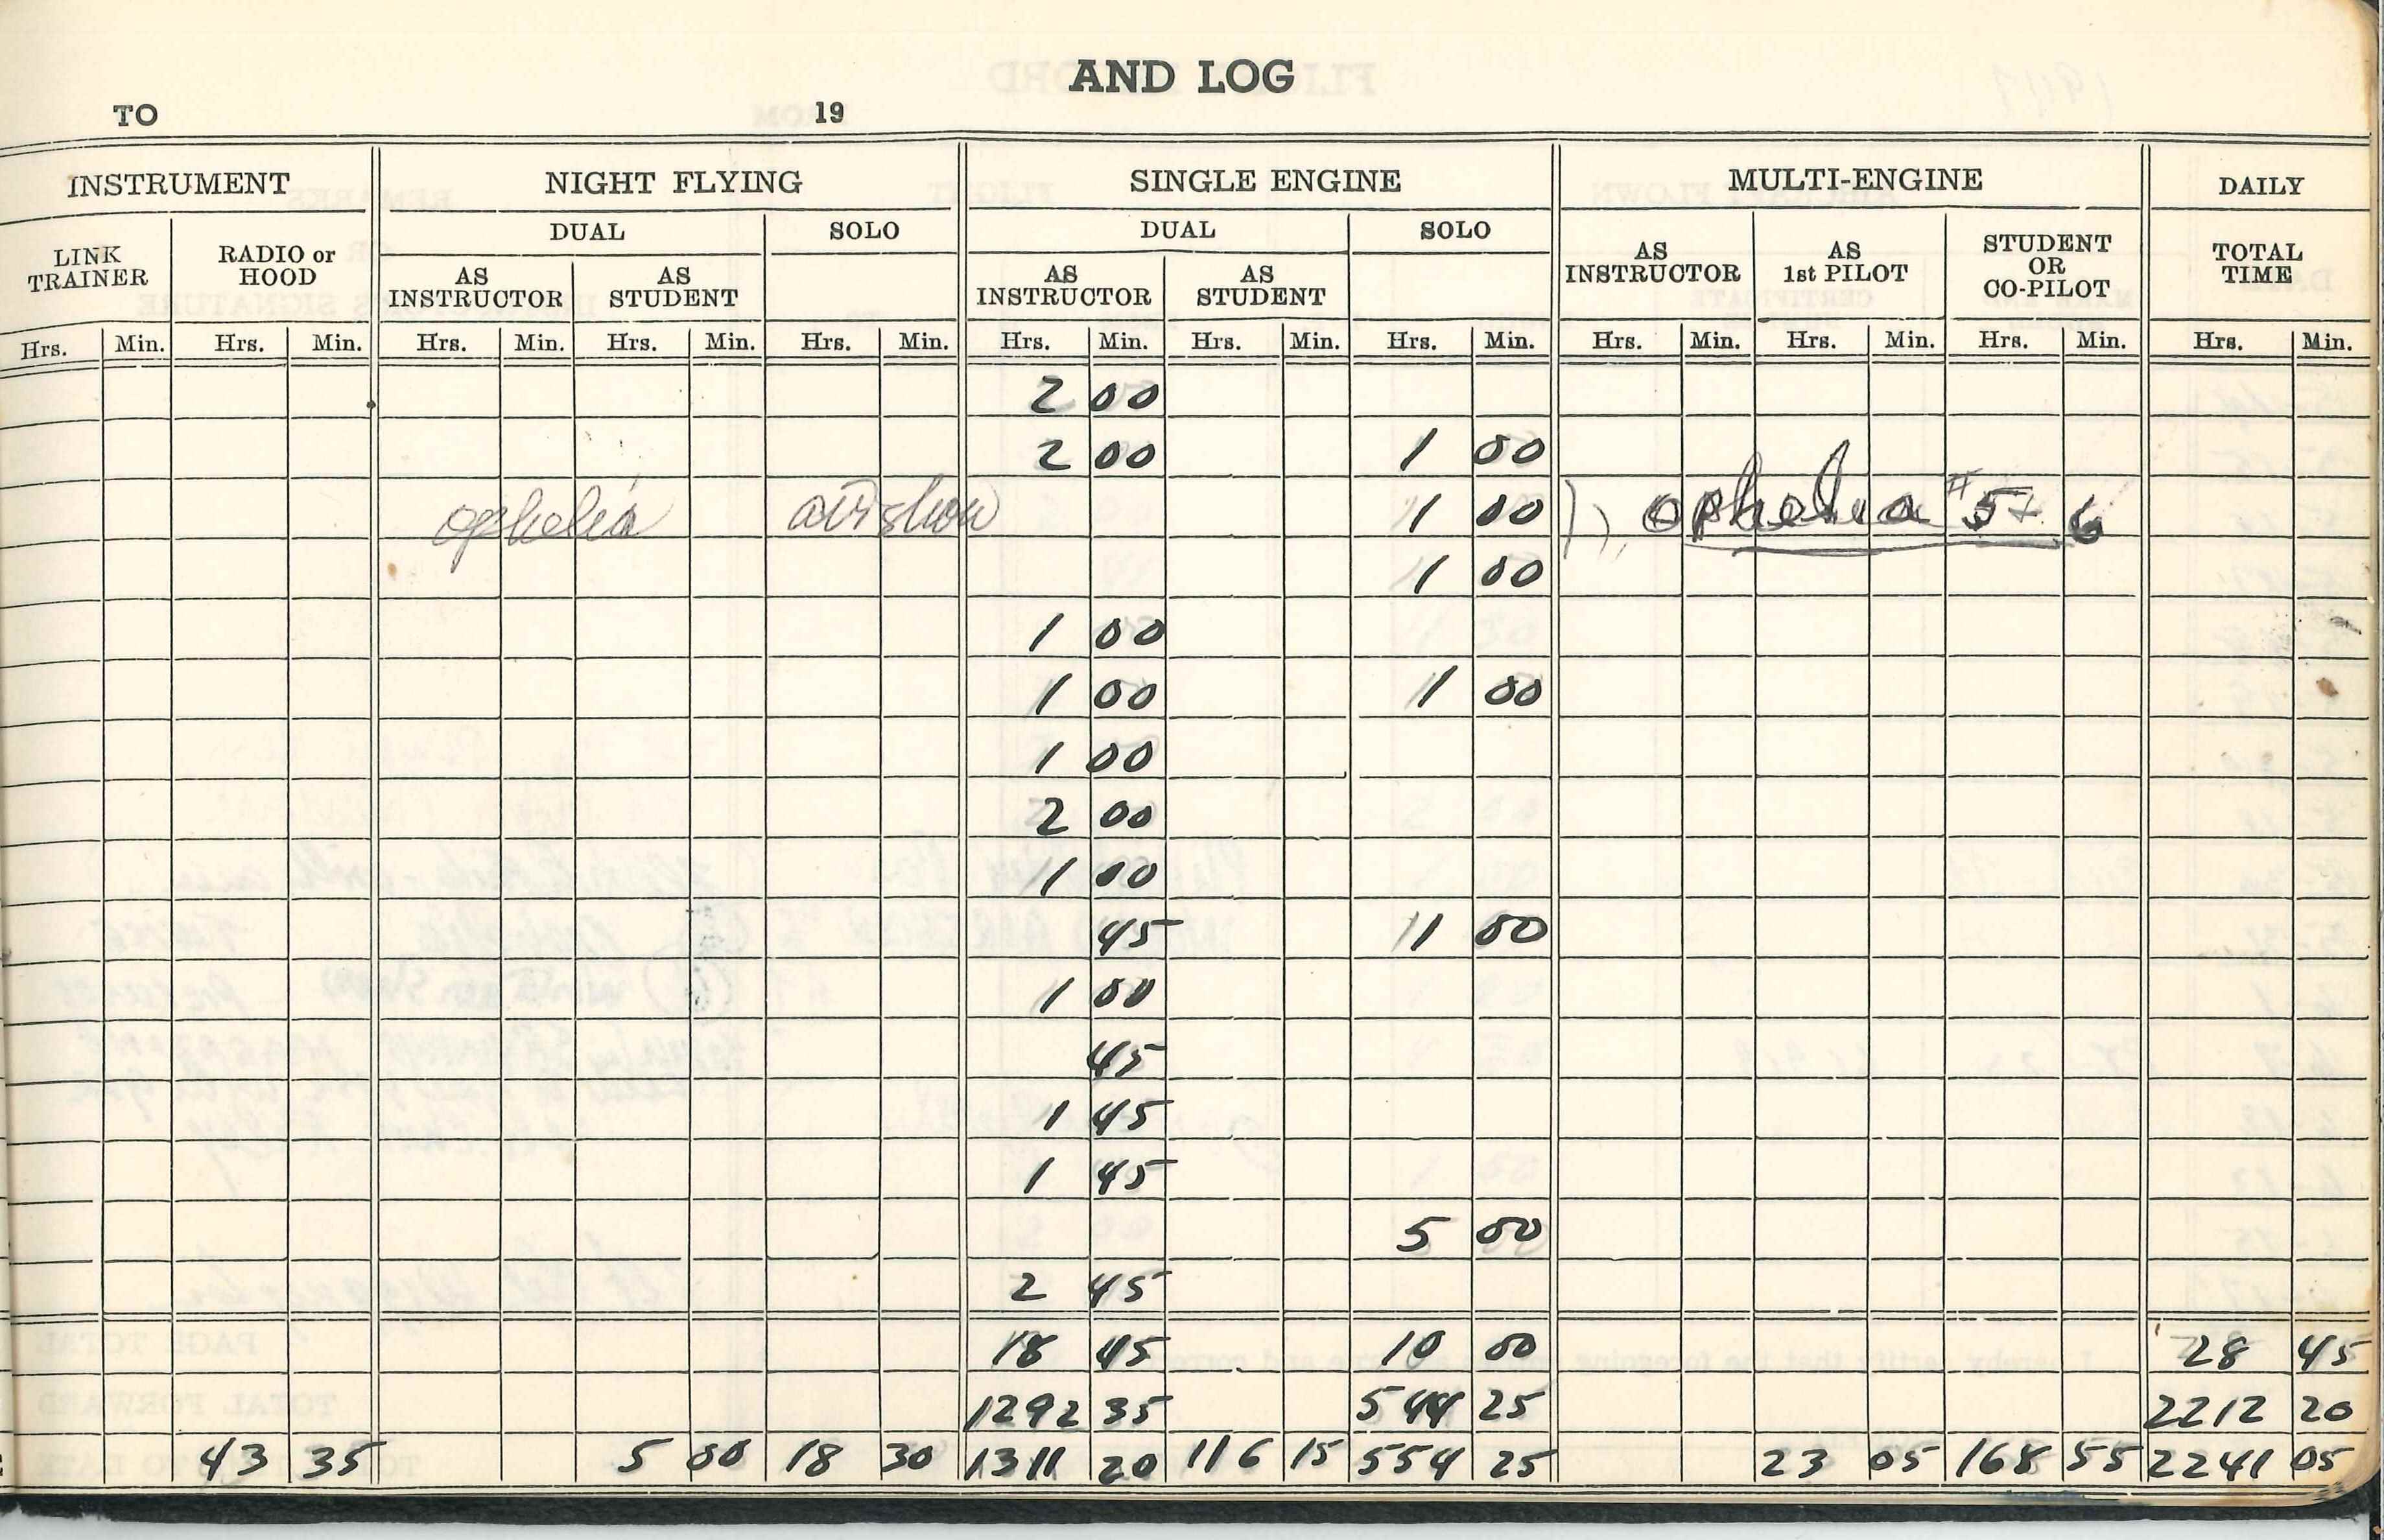 AND LOG
TO 19
INSTRUMENT NIGHT FLYING SINGLE ENGINE MULTI-ENGINE DAILY
DUAL SOLO DUAL SOLO
LINK TRAINER RADIO or HOOD AS INSTRUCTOR AS STUDENT AS INSTRUCTOR AS STUDENT AS INSTRUCTOR AS 1st PILOT STUDENT OR CO-PILOT TOTAL TIME
Hrs. Min. Hrs. Min. Hrs. Min. Hrs. Min. Hrs. Min. Hrs. Min. Hrs. Min. Hrs. Min. Hrs. Min. Hrs. Min. Hrs. Min. Hrs. Min.
2 00
2 00 1 00
ophelia airshow 1 00 ophelia #5+6
1 00
1 00
1 00 1 00
1 00
2 00
1 00
45 11 00
1 00
45
1 45
1 45
5 00
2 45
18 45 10 00 28 45
1292 35 544 25 2212 20
43 35 5 00 18 30 1311 20 116 15 554 25 23 05 168 55 2241 05